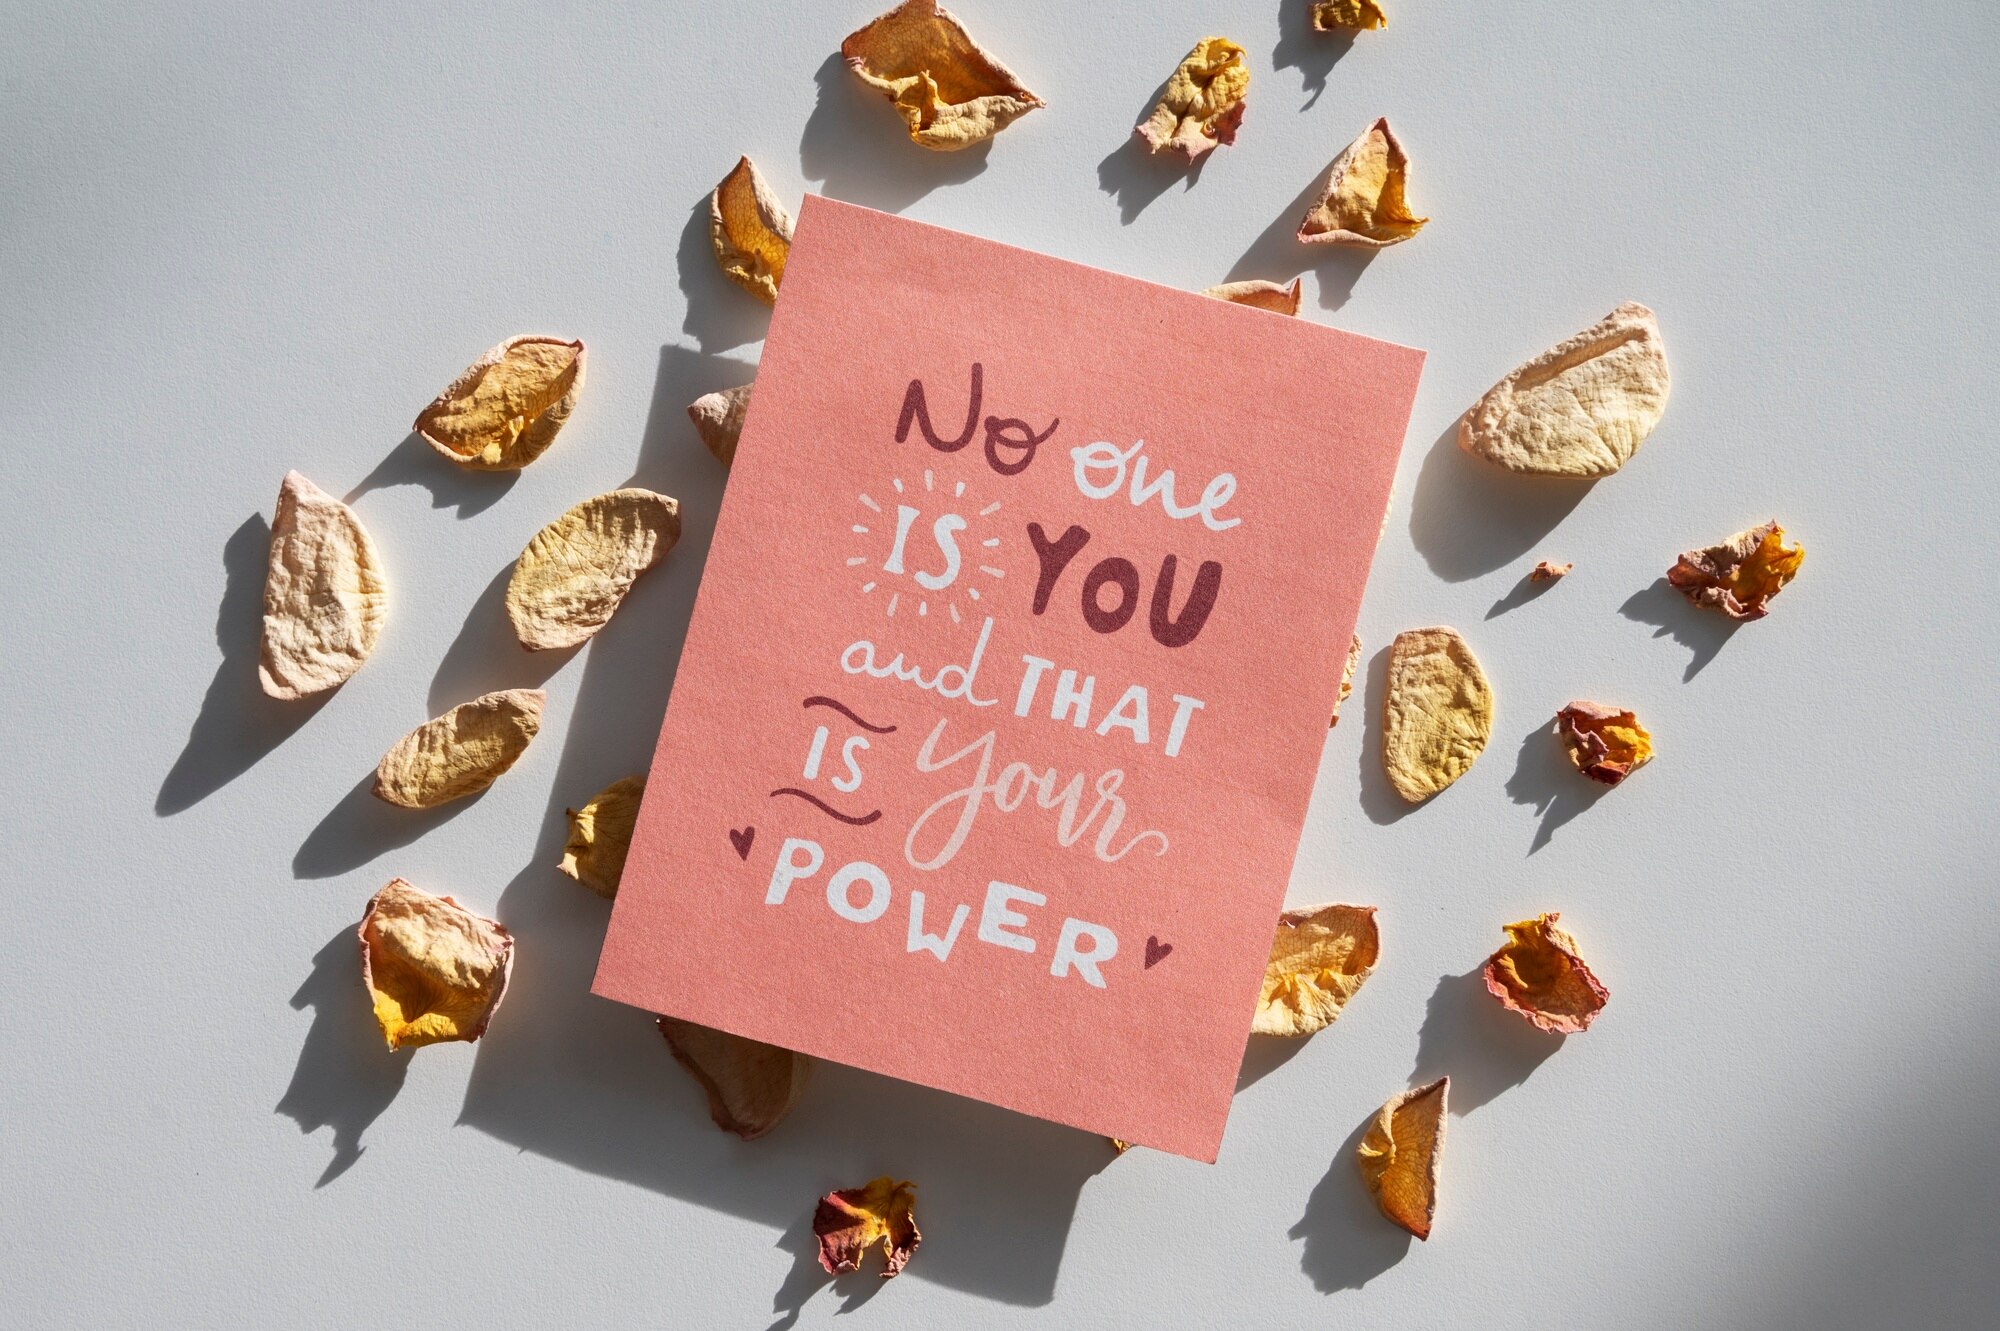 No one
IS YOU
and THAT
IS Your
POWER